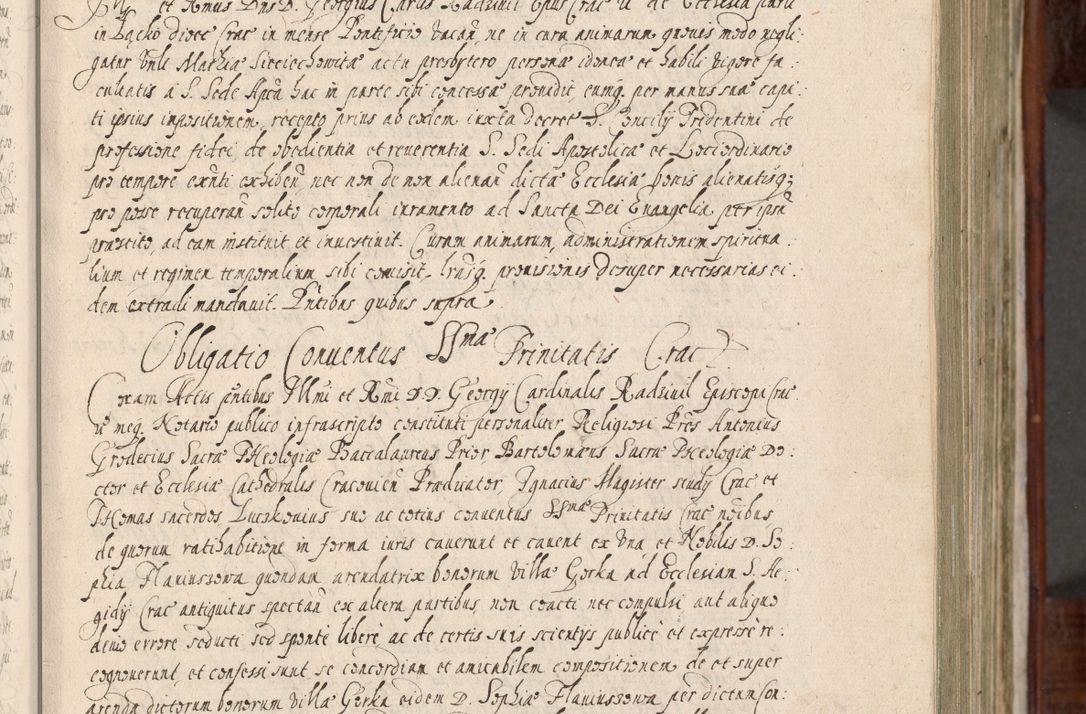 et Rmus Dns D. Georgius Card: Radziuil Epus Crac
in Backo dioec Crac in mense Pontificio vacan̄, ne in cura animarum grauis modo negli:
gatur Vnli Mathiæ Sieciechowita actu presbytero persona idonea et habili vigore fa:
cultatis a S. Sede Apca hac in parte sibi concessæ prouidit, eumq. per manus suæ capi:
ti ipsius inpositionem, recepto prius ab eodem iuxta decret S. Concily Tridentini de
professione fidei, de obedientia et reuerentia S. Sedi Apostolicæ et Lociordinario
pro tempore exn̄ti exhiben̄, nec non de non alienan̄ dictæ Ecclesiæ bonis alienatisq;
pro posse recuperan̄ solito corporali iuramento ad Sancta Dei Euangelia per ipsū
præstito, ad eam instituit et inuestiuit. Curam animarum, administrationem spiritua:
lium et regimen temporalium sibi comisit, lrasq. prouisionis desuper necessarias ei:
dem extradi mandauit. Pn̄tibus quibus supra
Obligatio Conuentus SSmæ Trinitatis Crac
Coram Actis pn̄tibus Illmi et Rmi D.D. Georgy Cardinalis Radziuil Episcopi Crac
et meq. Notario publico infrascripto constituti personaliter Religiosi Prēs Antonius
Grodecius Sacræ THeologiæ Baccalaureus Prior, Bartolomæus Sacræ THeologiæ Do:
ctor et Ecclesiæ Cathedralis Cracouien̄ Prædicator, Ignacius Magister study Crac et
THomas sacerdos, Luczkouius suo ac totius conuentus SSmæ Trinitatis Crac noibus
de quorum ratihabitione in forma iuris cauerunt et cauent ex vna et Nobilis D. So:
phia Flauiuszowa quondam arendatrix bonorum villæ Gorka ad Ecclesiam S. Æ:
gidy Crac antiquitus spectan̄ ex altera partibus, non coacti nec compulsi aut aliquo
deuio errore seducti sed sponte libere ac de certis suis scientys publice et expresse re:
cognouerunt, et confessi sunt se concordiam et amicabilem compositionem de et super
arenda dictorum bonorum villæ Gorka eidem D. Sophiæ Flauiuszowa per dictum Con: